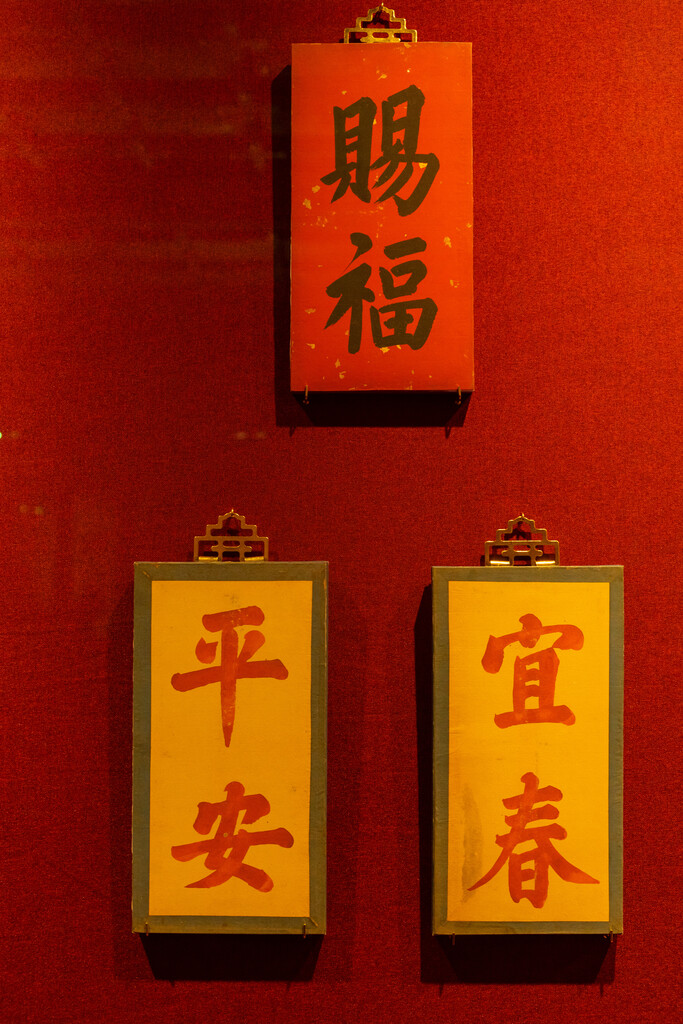 賜福
宜春
平安